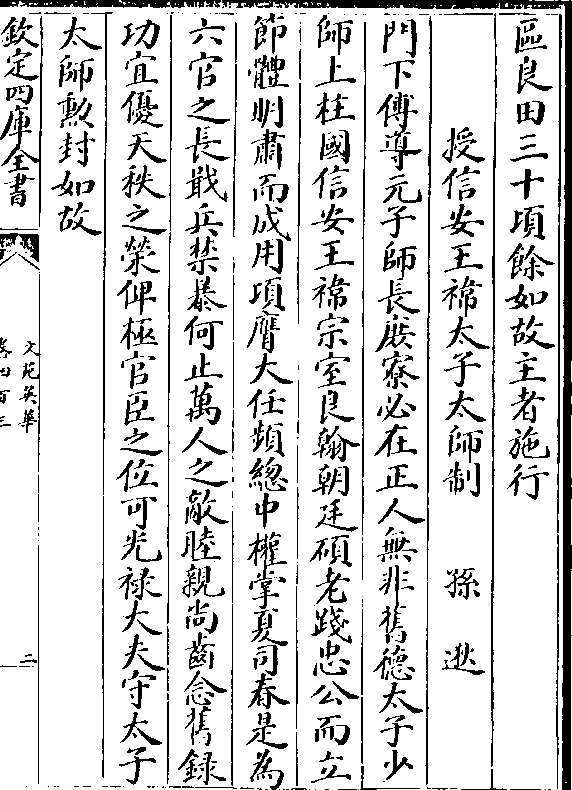 區良田三十頃餘如故主者施行
授信安王褘太子太師制 孫逖
門下傅導元子師長庻寮必在正人無非舊德太子少
師上柱國信安王褘宗室良翰朝廷碩老踐忠公而立
節體明肅而成用項膺大任頻總中權掌夏司春是為
六官之長戢兵禁暴何止萬人之敵睦親尚齒念舊錄
功宜優天秩之榮俾極官臣之位可光禄大夫守太子
太師勲封如故
欽定四庫全書
文苑英華
卷四百三
二